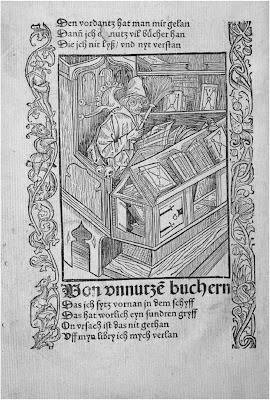 Den vordantz hat man mir gelan
Dann ich on nutz vil bůcher han
Die ich nit lyß / vnd nyt verstan
Von vnnutzẽ buchern
Das ich sytz vornan in dem schyff
Das hat worlich eyn sundren gryff
On vrsach ist das nit gethan
Vff myn libry ich mych verlan